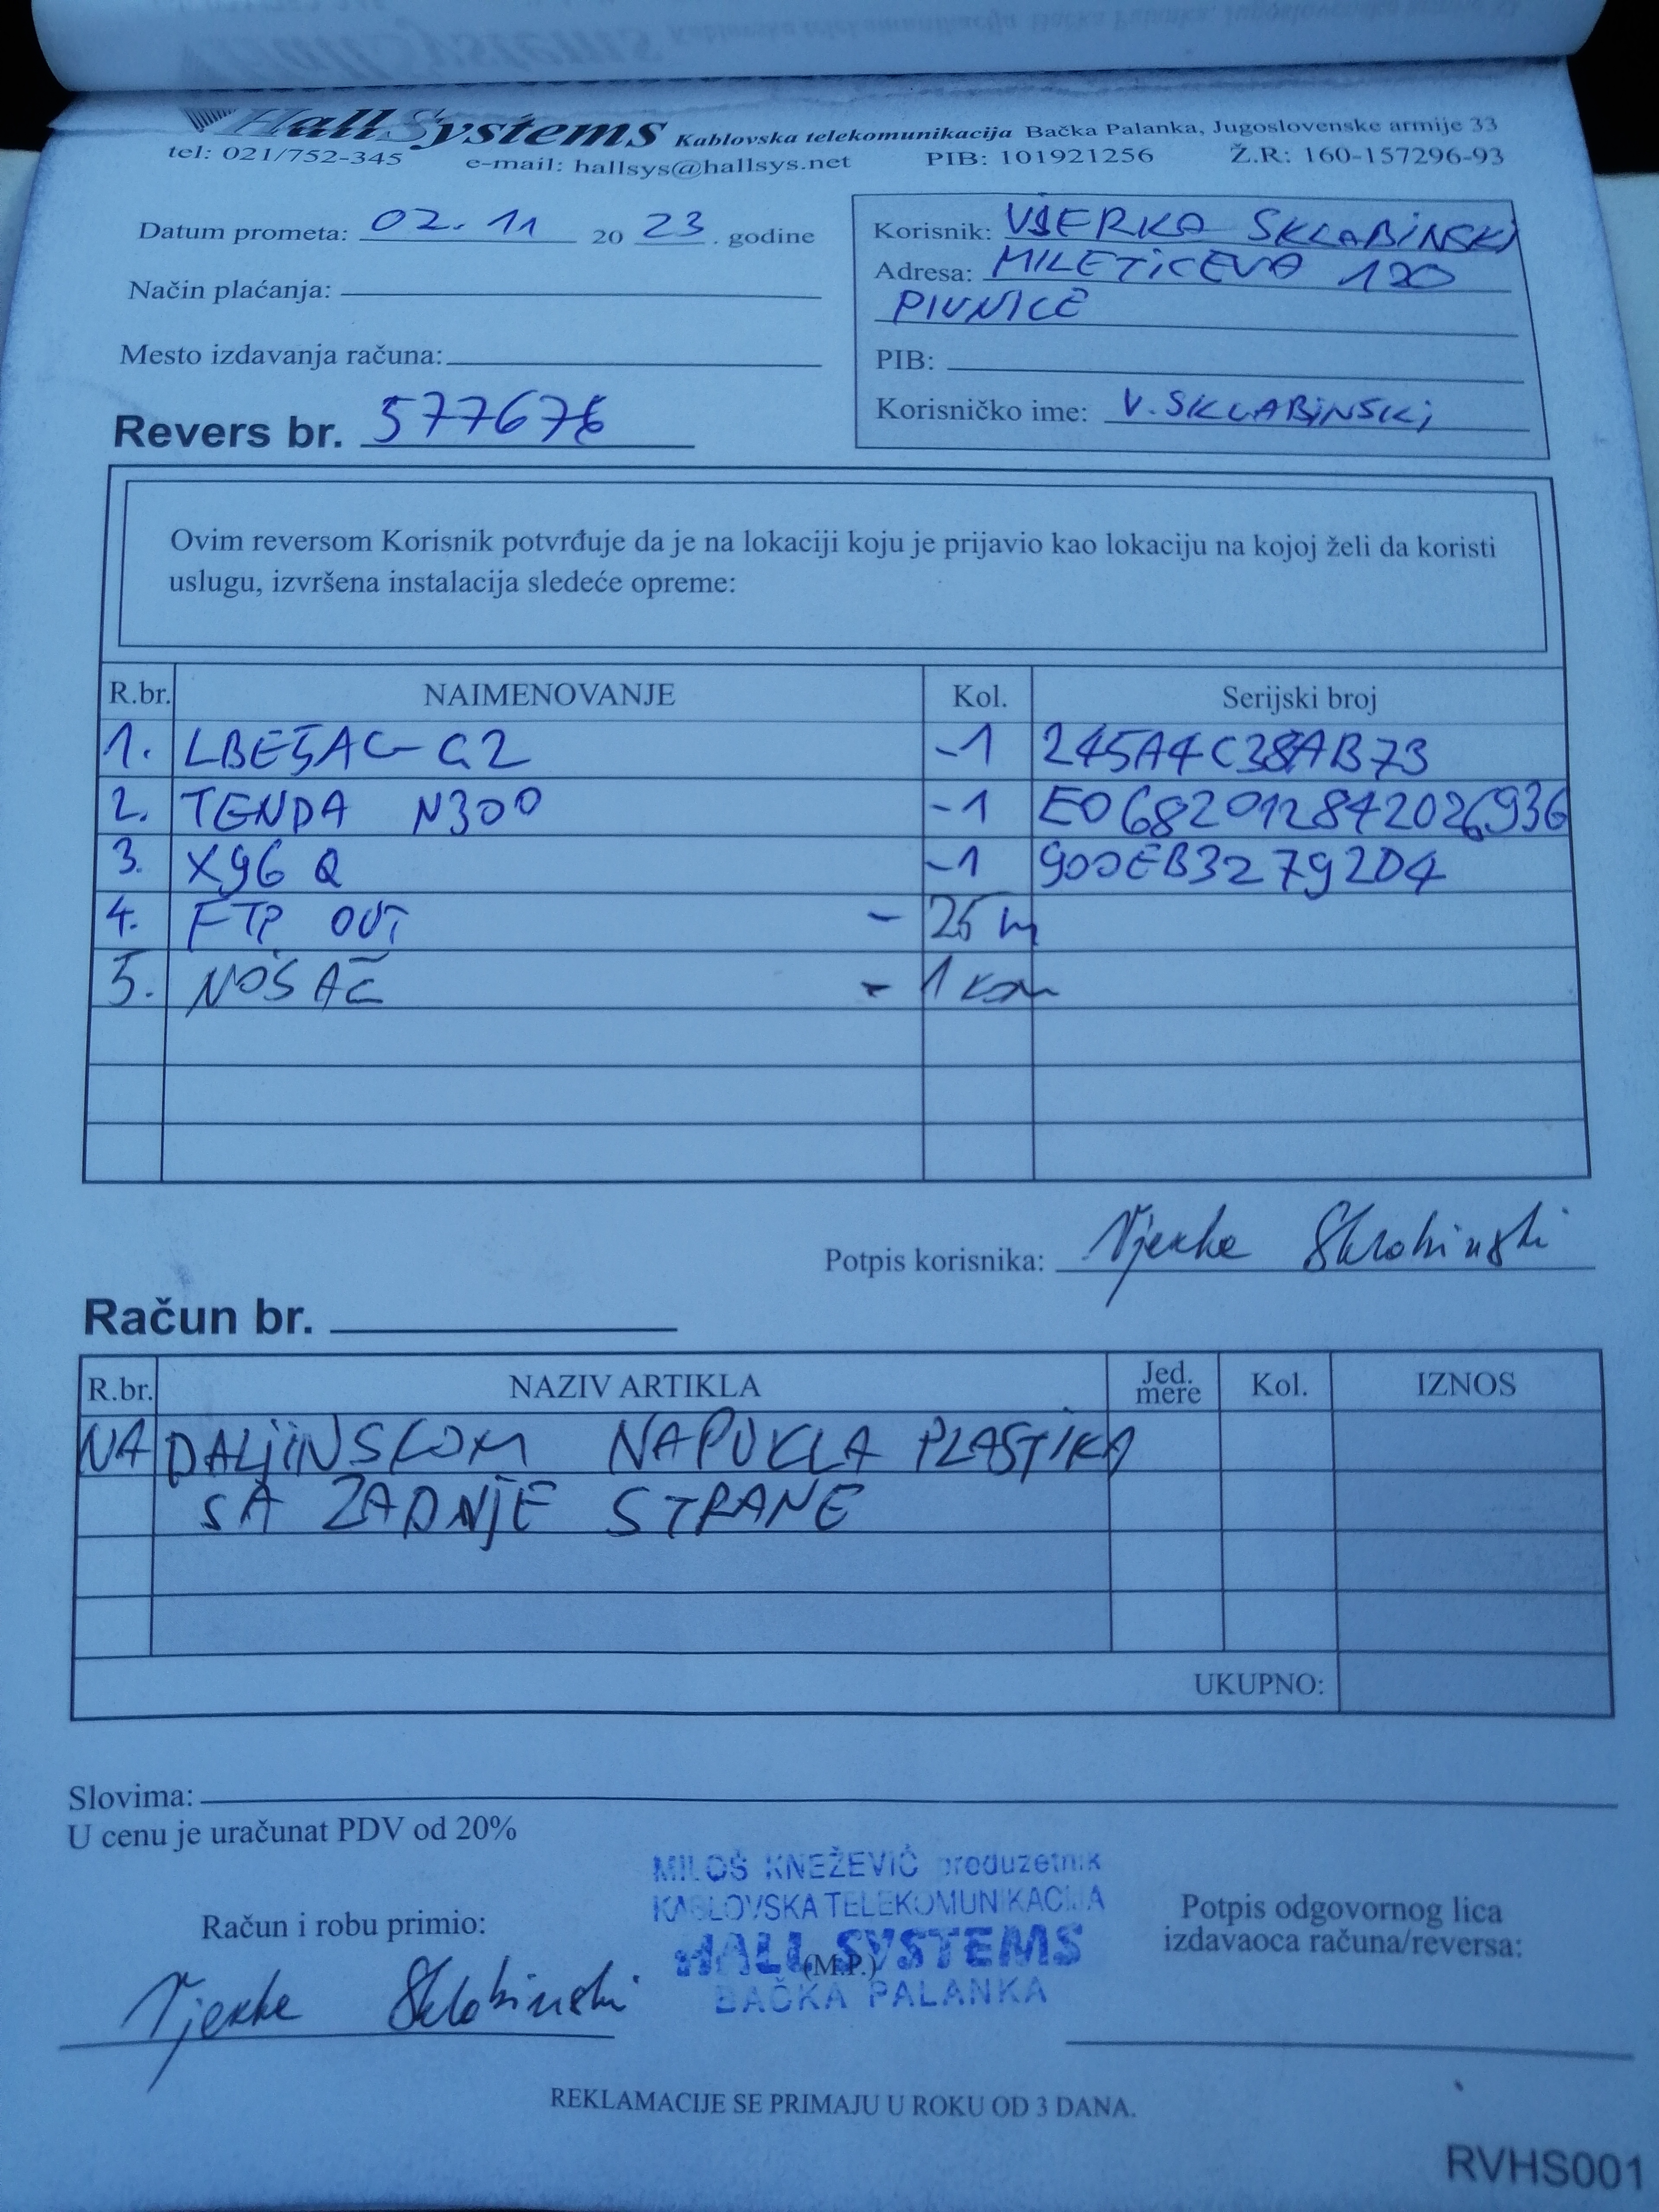 Hall Systems Kablovska telekomunikacija Bačka Palanka, Jugoslovenske armije 33
tel: 021/752-345 e-mail: hallsys@hallsys.net PIB: 101921256 Ž.R: 160-157296-93
Datum prometa: 02.11 20 23. godine
Način plaćanja:
Mesto izdavanja računa:
Revers br. 577676
Korisnik: VJERKA SKLABINSKI
Adresa: MILETIĆEVA 120
PIVNICE
PIB:
Korisničko ime: V.SKLABINSKI
Ovim reversom Korisnik potvrđuje da je na lokaciji koju je prijavio kao lokaciju na kojoj želi da koristi
uslugu, izvršena instalacija sledeće opreme:
R.br. NAIMENOVANJE Kol. Serijski broj
1. LBE5AC-G2 -1 245A4C38AB73
2. TENDA N300 -1 E0682012842026936
3. X96 Q -1 900EB3279204
4. FTP OUT - 25 m
5. NOSAČ - 1 kom
Potpis korisnika: Vjerka Sklabinski
Račun br.
R.br. NAZIV ARTIKLA Jed. mere Kol. IZNOS
NA DALJINSKOM NAPUKLA PLASTIKA
SA ZADNJE STRANE
UKUPNO:
Slovima:
U cenu je uračunat PDV od 20%
MILOŠ KNEŽEVIĆ preduzetnik
KABLOVSKA TELEKOMUNIKACIJA
HALL SYSTEMS
(M.P.)
BAČKA PALANKA
Račun i robu primio:
Vjerka Sklabinski
Potpis odgovornog lica
izdavaoca računa/reversa:
REKLAMACIJE SE PRIMAJU U ROKU OD 3 DANA.
RVHS001